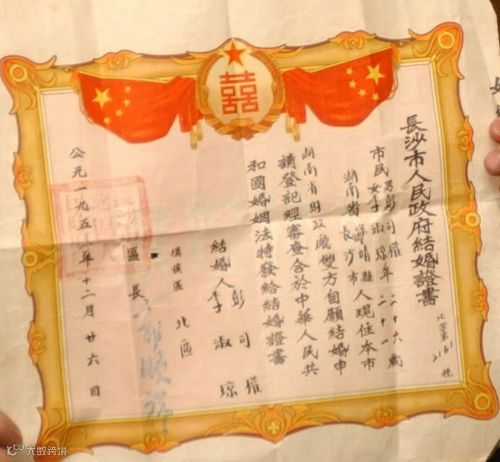 囍
長沙市人民政府結婚證書
北字第
號
市民男彭司權年二十六歲
女李淑瓊年二十一
湖南省
縣人現住本市
長沙市
湖南省財政廳雙方自願結婚申
請登記經審查合於中華人民共
和國婚姻法特發給結婚證書
結婚人彭司權
李淑瓊
填發區 北區
區長
公元一九五 年十二月廿六日
大数跨境